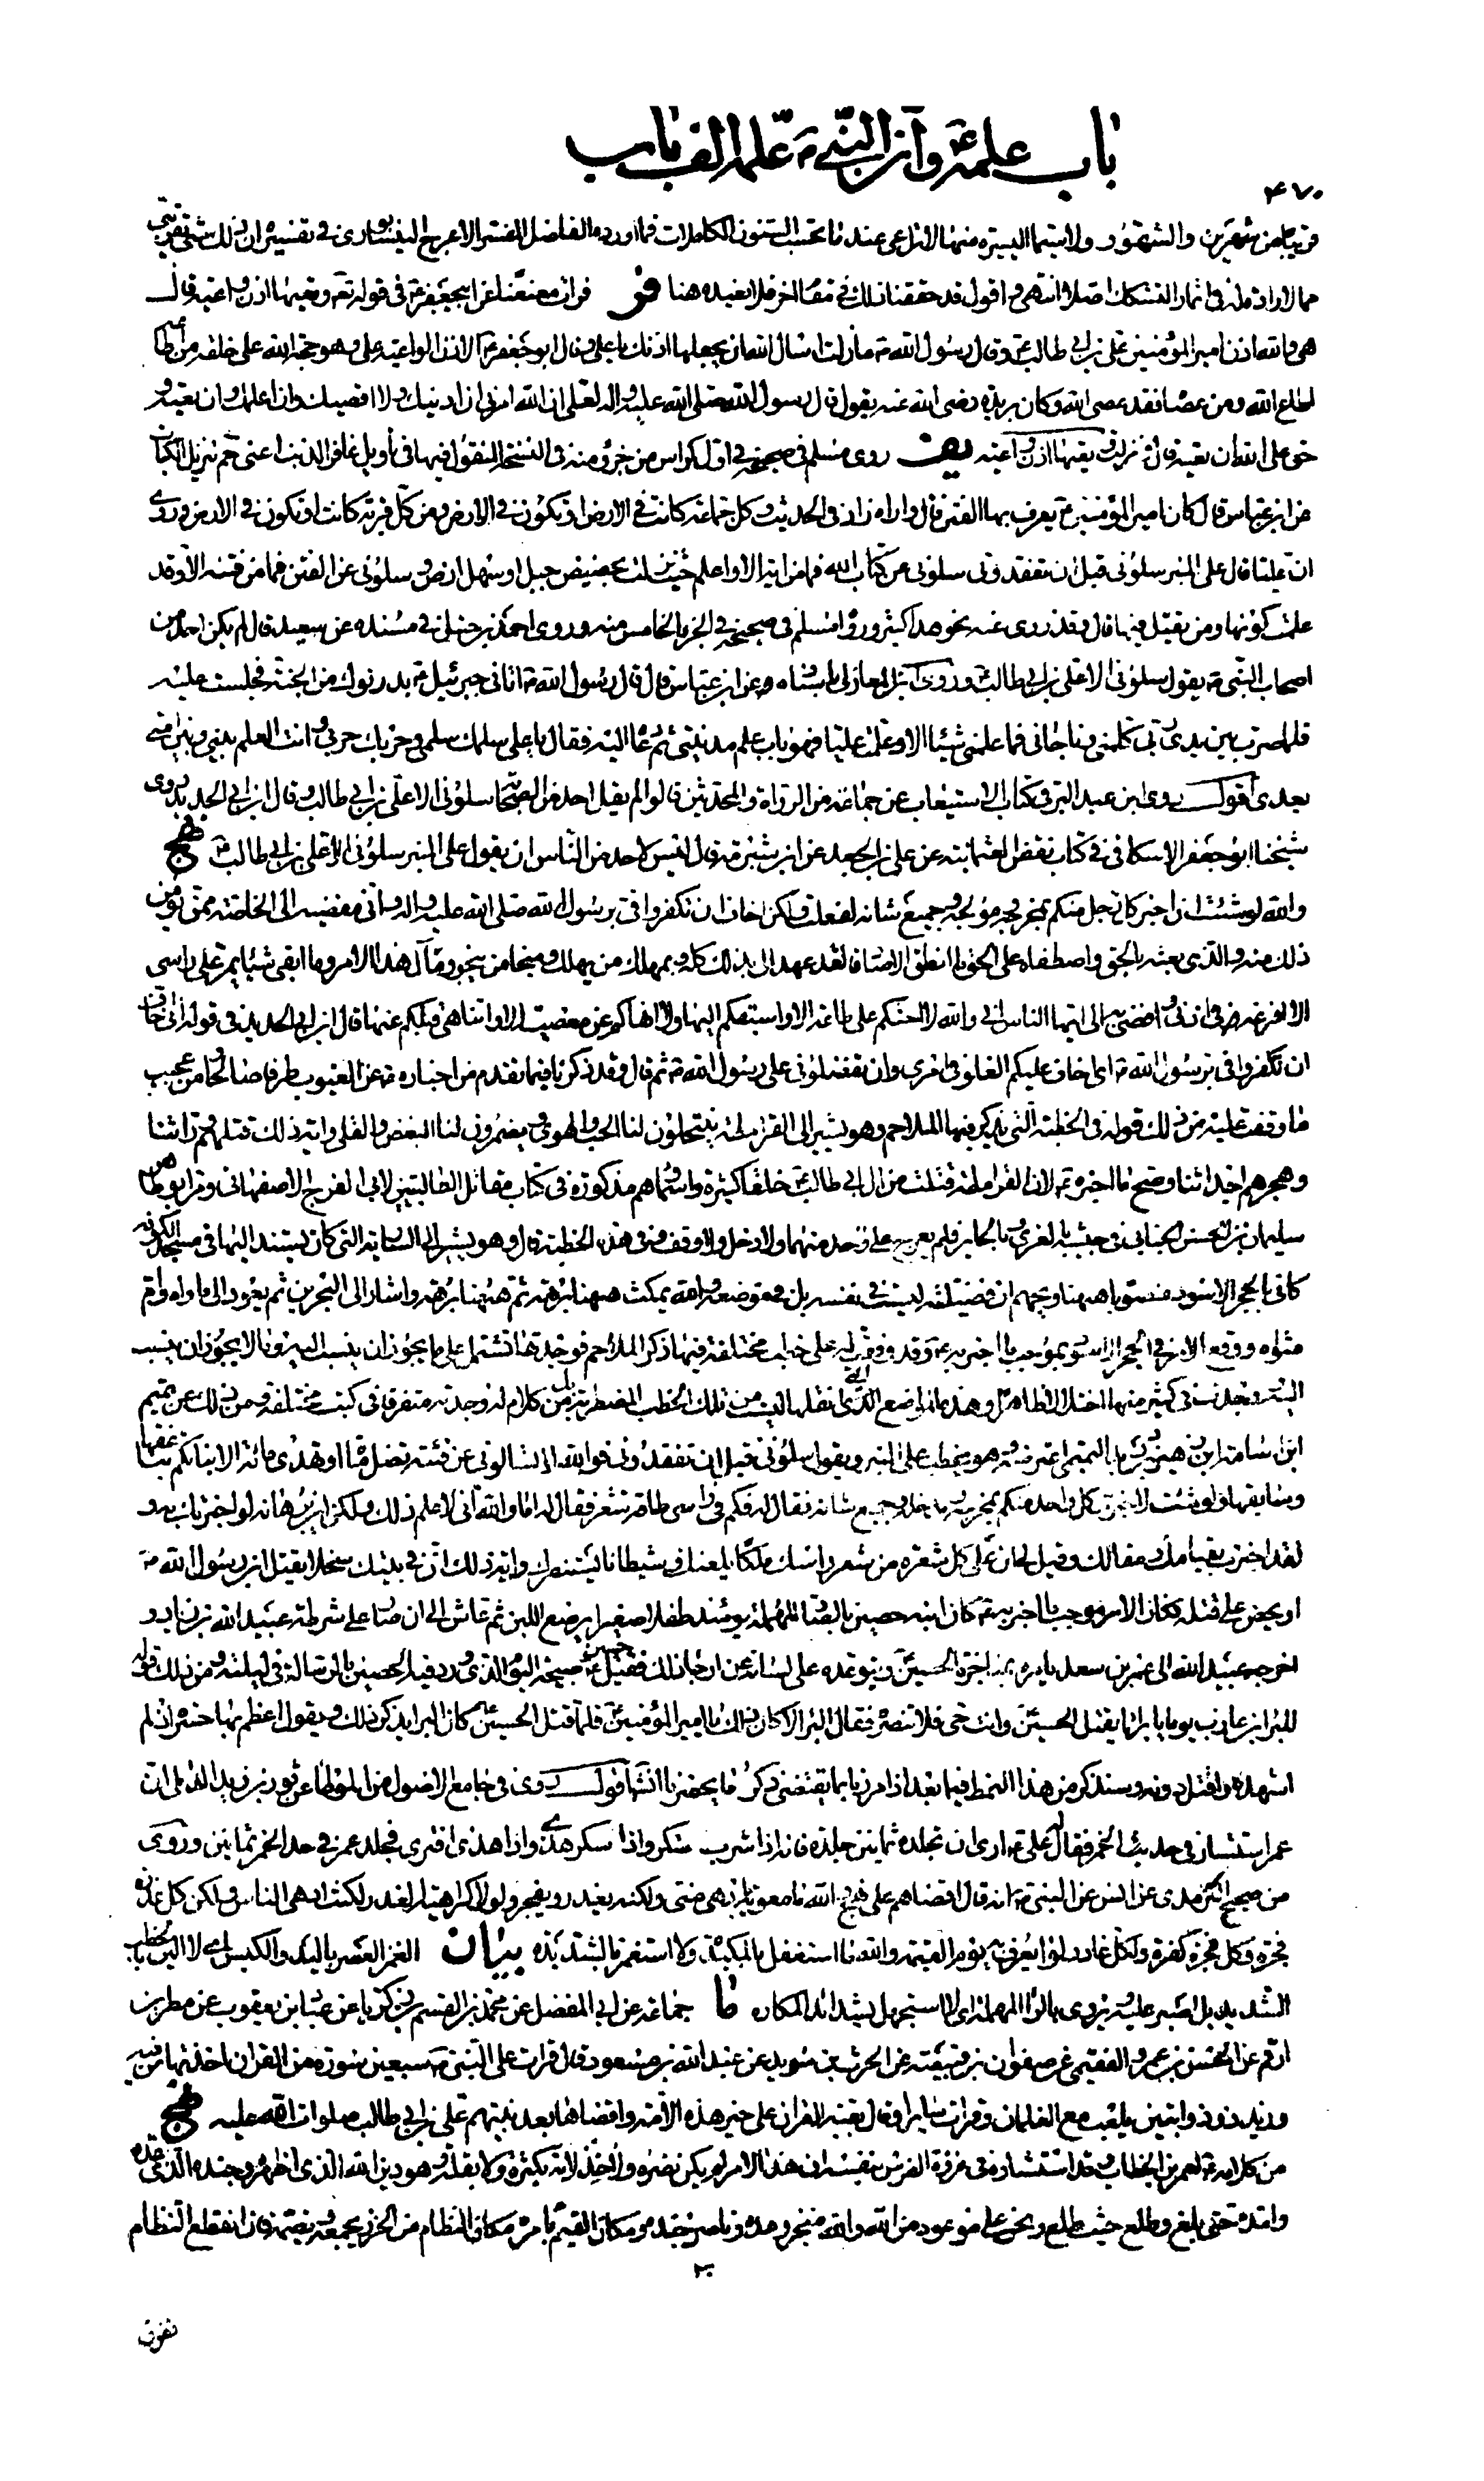 باب علمه ع وان النبي ص علمه الف باب
٤٧٠
قريبا من شهرين والشهور ولا سيما اليسيرة منها لا تراعى عند ما تحسب السنون الكاملات فما اورده الفاضل المفسر الاعرج النيسابوري في تفسيره ان ذلك شيء تقريبي
مما لا ارادة له في اثمار التشكك اصلا انتهى و اقول قد حققنا ذلك في مقام اخر فلا نعيده هنا فر فرات معنعنا عن ابي جعفر ع في قوله تع وتعيها اذن واعية قال
هي والله اذن امير المؤمنين علي بن ابي طالب ع وقال رسول الله ص ما زلت اسال الله ان يجعلها اذنك يا علي وقال ابو جعفر ع الاذن الواعية علي وهو حجة الله على خلقه من اطاعه
اطاع الله ومن عصاه فقد عصى الله وكان بريدة رضي الله عنه يقول قال رسول الله صلى الله عليه واله لعلي ان الله امرني ان ادنيك ولا اقصيك وان اعلمك وان تعيه و
حق على الله ان تعيه قال فنزلت وتعيها اذن واعية يف روى مسلم في صحيحه في اول كراس من جزء منه في النسخة المنقول فيها في تاويل غافر الذنب اعني حم تنزيل الكتاب
عن ابن عباس قال كان امير المؤمنين ع يعرف بها الفتن قال واراه زاد في الحديث وكل جماعة كانت في الارض او تكون في الارض ومن كل قرية كانت او تكون في الارض وروى
ان عليا قال على المنبر سلوني قبل ان تفقدوني سلوني عن كتاب الله فما من اية الا واعلم حيث نزلت بحضيض جبل او سهل ارض و سلوني عن الفتن فما من فتنة الا وقد
علمت كونها ومن يقتل فيها قال وقد روى عنه نحو هذا كثير وروى مسلم في صحيحه في الجزء الخامس منه وروى احمد بن حنبل في مسنده عن سعيد قال لم يكن احد من
اصحاب النبي ص يقول سلوني الا علي بن ابي طالب ع وروى ابن المغازلي باسناده عن ابن عباس قال قال رسول الله ص اتاني جبرئيل ع بدرنوك من الجنة فجلست عليه
فلما صرت بين يدي ربي كلمني وناجاني فما علمني شيئا الا وعلمت عليا فهو باب علم مدينتي ثم دعا اليه فقال يا علي سلمك سلمي وحربك حربي وانت العلم بيني وبين امتي
بعدي اقول روى ابن عبد البر في كتاب الاستيعاب عن جماعة من الرواة والمحدثين قالوا لم يقل احد من الصحابة سلوني الا علي بن ابي طالب وقال ابن ابي الحديد روى
شيخنا ابو جعفر الاسكافي في كتاب نقض العثمانية عن علي بن الجعد عن ابن شبرمة قال ليس لاحد من الناس ان يقول على المنبر سلوني الا علي بن ابي طالب ع نهج
والله لو شئت ان اخبر كل رجل منكم بمخرجه ومولجه وجميع شانه لفعلت ولكن اخاف ان تكفروا في برسول الله صلى الله عليه واله واني مفضيه الى الخاصة ممن يؤمن
ذلك منه والذي بعثه بالحق واصطفاه على الخلق ما انطق الا صادقا لقد عهد الي بذلك كله وبمهلك من يهلك ومنجا من ينجو ومآل هذا الامر وما ابقى شيئا يمر على راسي
الا افرغه في اذني وافضى به الي ايها الناس اني والله لا احثكم على طاعة الا واسبقكم اليها ولا انهاكم عن معصية الا واتناهى قبلكم عنها قال ابن ابي الحديد في قوله اني اخاف
ان تكفروا في برسول الله ص اي اخاف عليكم الغلو في امري وان تفضلوني على رسول الله ص ثم قال وقد ذكرنا فيما تقدم من اخباره ع عن الغيوب طرفا صالحا ومن عجيب
ما وقفت عليه من ذلك قوله في الخطبة التي يذكر فيها الملاحم وهو يشير الى القرامطة ينتحلون لنا الحب والهوى ويضمرون لنا البغض والقلى واية ذلك قتلهم وراثنا
وهجرهم احداثنا وصح ما اخبر به لان القرامطة قتلت من ال ابي طالب ع خلقا كثيرة واسماؤهم مذكورة في كتاب مقاتل الطالبيين لابي الفرج الاصفهاني ومر ابو طاهر
سليمان بن الحسن الجنابي في جيشه بالغري وبالحاير فلم يعرج على واحد منهما ولا دخل ولا وقف وفي هذه الخطبة قال وهو يشير الى السارية التي كان يستند اليها في مسجد الكوفة
كاني بالحجر الاسود منصوبا ههنا ويحهم ان فضيلته ليست في نفسه بل في موضعه واسه يمكث ههنا برهة ثم ههنا برهة واشار الى البحرين ثم يعود الى ماواه وام
مثواه ووقع الامر في الحجر الاسود بموجب ما اخبر به ع وقد وقفت له على خطب مختلفة فيها ذكر الملاحم فوجدتها تشتمل على ما يجوز ان ينسب اليه وما لا يجوز ان ينسب
اليه ووجدت في كثير منها اختلالا ظاهرا وهذه المواضع التي انقلها ليست من تلك الخطب المضطربة بل من كلام له وجدته متفرقا في كتب مختلفة ومن ذلك ع تميم
ابن اسامة ابن زهير بن دريد التميمي اعترضه وهو يخطب على المنبر ويقول سلوني قبل ان تفقدوني فوالله لا تسالوني عن فئة تضل مائة او تهدي مائة الا انباتكم بناعقها
وسائقها ولو شئت لاخبرت كل واحد منكم بمخرجه ومدخله وجميع شانه فقال له فكم في راسي طاقة شعر فقال له اما والله اني لاعلم ذلك ولكن اين برهانه لو اخبرتك به و
لقد اخبرت بقيامك ومقالك وقيل لي ان على كل شعرة من شعر راسك ملكا يلعنك وشيطانا يستنصرك واية ذلك ان في بيتك سخلا يقتل ابن رسول الله ص
او يحض على قتله فكان الامر بموجب ما اخبر به ع كان ابنه حصين بالصاد المهملة يومئذ طفلا صغيرا يرضع اللبن ثم عاش الى ان صار على شرطة عبيد الله بن زياد و
اخرجه عبيد الله الى عمر بن سعد يامره بمناجزة الحسين ع ويتوعده على لسانه عن ارجائه ذلك فقتل ع صبيحة اليوم الذي ورد فيه الحصين بالرسالة في ليلته ومن ذلك قوله
للبراء بن عازب يوما يا براء ايقتل الحسين وانت حي فلا تنصره فقال البراء لا كان ذلك يا امير المؤمنين ع فلما قتل الحسين ع كان البراء يذكر ذلك ويقول اعظم بها حسرة اذ لم
اشهده واقتل دونه وسنذكر من هذا النمط فيما بعد اذا مررنا بما يقتضي ذكره ما يحضرنا انتهى اقول روى في جامع الاصول من الموطا عن ثور بن زيد الديلي ان
عمر استشار في حد شارب الخمر فقال له علي ع ارى ان تجلده ثمانين جلدة فانه اذا شرب سكر واذا سكر هذى واذا هذى افترى فجلد عمر في حد الخمر ثمانين وروى
من صحيح الترمذي عن انس عن النبي ص انه قال اقضاهم علي نهج والله ما معوية بادهى مني ولكنه يغدر ويفجر ولولا كراهية الغدر لكنت ادهى الناس ولكن كل غدرة
فجرة وكل فجرة كفرة ولكل غادر لواء يعرف به يوم القيمة والله ما استغفل بالمكيدة ولا استغمز بالشديدة بيان الغمز العصر باليد والكبس اي لا الين بالخطب
الشديد بل اصبر عليه ويروى بالراء المهملة اي لا استجهل بشدائد المكاره ما جماعة عن ابي المفضل عن محمد بن القسم بن زكريا عن عباد بن يعقوب عن مطر بن
ارقم عن الحسن بن عمرو الفقيمي عن صفوان بن قبيصة عن الحرث بن سويد عن عبد الله بن مسعود قال قرات على النبي ص سبعين سورة من القران اخذتها من فيه
وزيد ذو ذؤابتين يلعب مع الغلمان وقرات سائر او قال بقية القران على خير هذه الامة واقضاها بعد نبيهم علي بن ابي طالب صلوات الله عليه نهج
من كلامه ع لعمر بن الخطاب وقد استشاره في غزوة الفرس بنفسه ان هذا الامر لم يكن نصره ولا خذلانه بكثرة ولا بقلة وهو دين الله الذي اظهره وجنده الذي اعده
وامده حتى بلغ ما بلغ وطلع حيث طلع ونحن على موعود من الله والله منجز وعده وناصر جنده ومكان القيم بالامر مكان النظام من الخرز يجمعه ويضمه فان انقطع النظام
تفرق